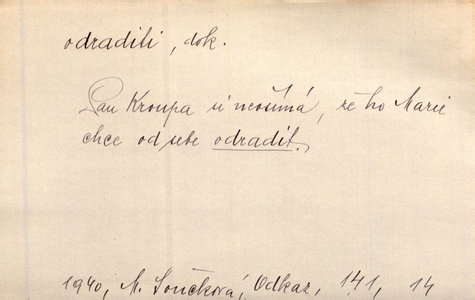 odraditi, dok.
Pan Kroupa si nevšímá, že ho Marie
chce od sebe odradit.
1940, M. Součková, Odkaz, 141, 14